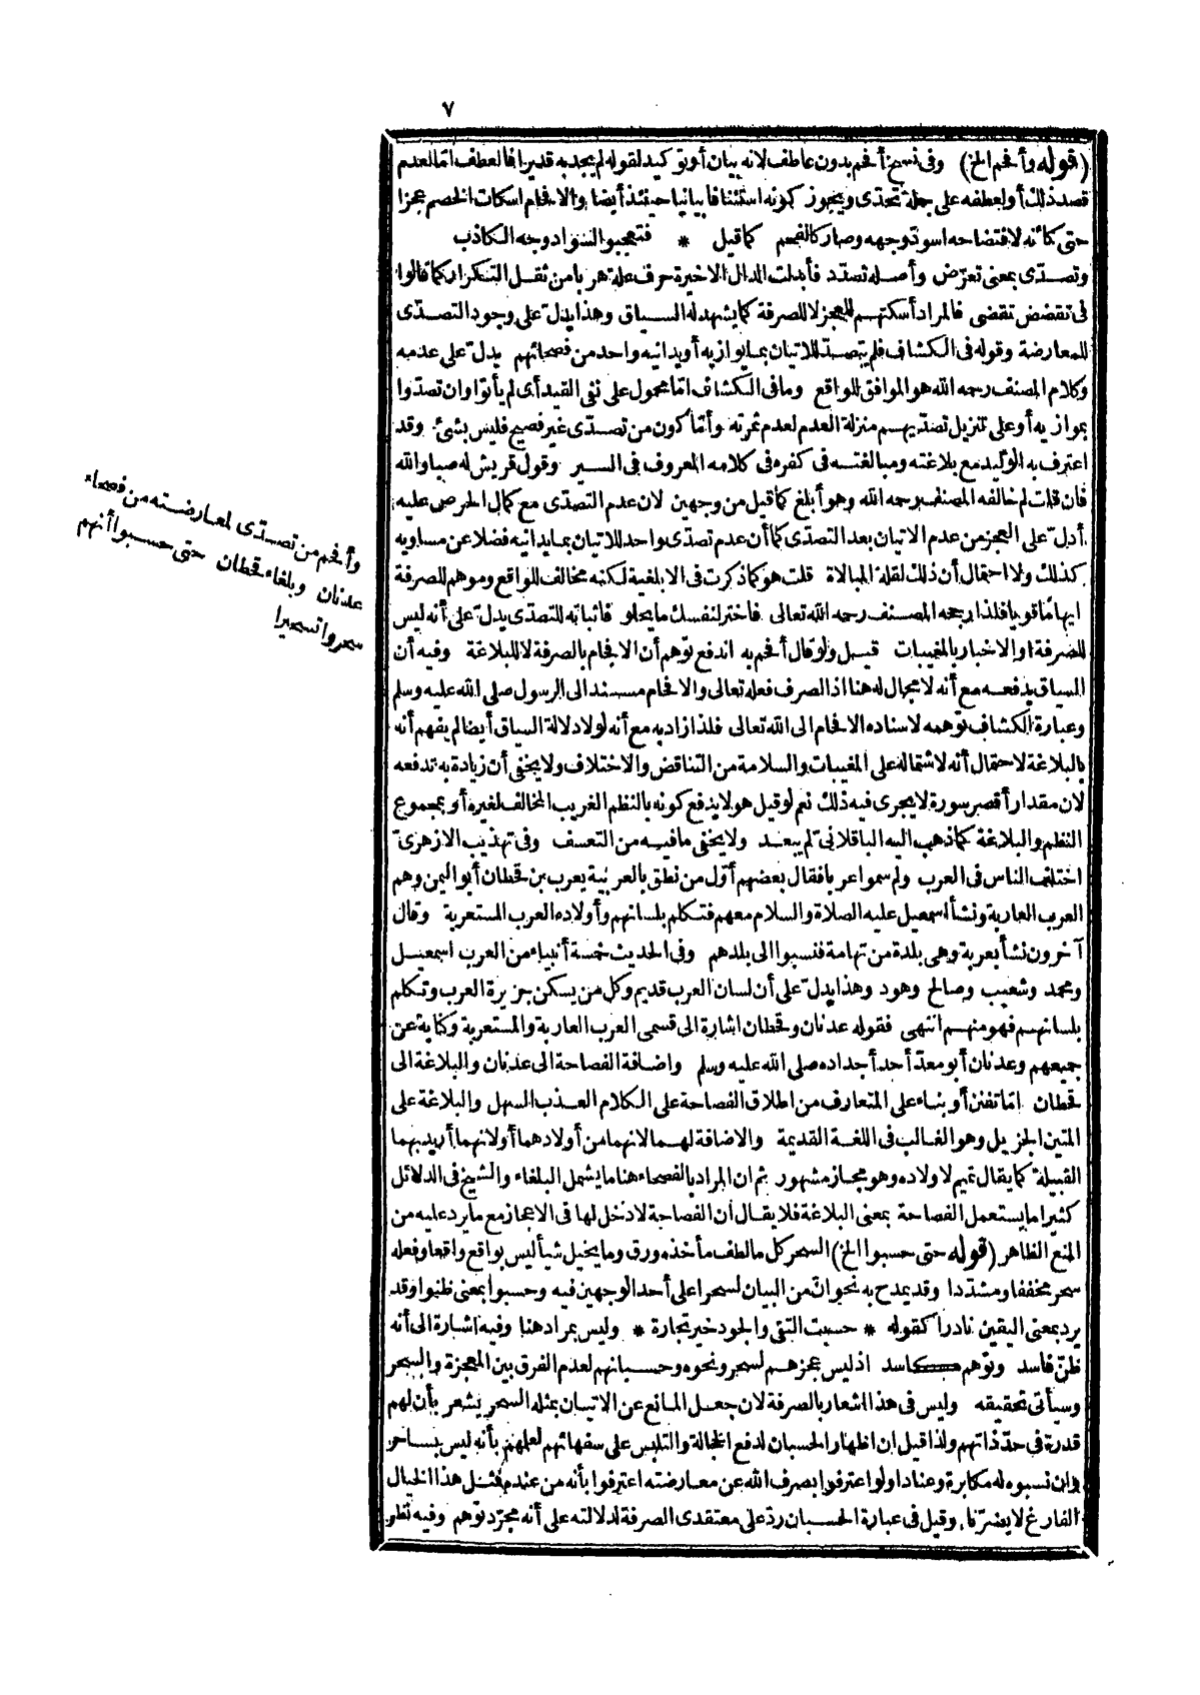 ٧
(قوله وأفحم الخ) وفى نسخ أفحم بدون عاطف لانه بيان أو توكيد لقوله لم يجد به قديرا فالعطف امّا لعدم
قصد ذلك أو لعطفه على جملة تحدى ويجوز كونه استئنافا بيانيا حينئذ أيضا والافحام اسكات الخصم عجزا
حتى كأنه لافتضاحه اسودّ وجهه وصار كالفحم كما قيل * فتعجبوا لسواد وجه الكاذب
وتصدّى بمعنى تعرّض وأصله تصدّد فأبدلت الدال الاخيرة حرف علة هربا من ثقل التكرار كما قالوا
فى تقضض تقضى فالمراد أسكتهم للعجز لا للصرفة كما يشهد له السياق وهذا يدلّ على وجود التصدّى
للمعارضة وقوله فى الكشاف فلم يتصدّ للاتيان بما يوازيه أو يدانيه واحد من فصحائهم يدلّ على عدمه
وكلام المصنف رحمه الله هو الموافق للواقع وما فى الكشاف امّا محمول على نفى القيد أى لم يأتوا وان تصدّوا
بموازيه أو على تنزيل تصدّيهم منزلة العدم لعدم ثمرته وأمّا كون من تصدّى غير فصيح فليس بشئ وقد
اعترف به الوليد مع بلاغته ومبالغته فى كفره فى كلامه المعروف فى السير وقول قريش له صبا والله
فان قلت لم خالفه المصنف رحمه الله وهو أبلغ كما قيل من وجهين لان عدم التصدّى مع كمال الحرص عليه
أدلّ على العجز من عدم الاتيان بعد التصدّى كما أن عدم تصدّى واحد للاتيان بما يدانيه فضلا عن مساويه
كذلك ولا احتمال أن ذلك لقلة المبالاة قلت هو كما ذكرت فى الابلغية لكنه مخالف للواقع وموهم للصرفة
ايهاما قويا فلذا رجحه المصنف رحمه الله تعالى فاختر لنفسك ما يحلو فاثباته للتصدّى يدلّ على أنه ليس
للصرفة او الاخبار بالمغيبات قيل ولو قال أفحم به اندفع توّهم أن الافحام بالصرفة لا للبلاغة وفيه أن
السياق يدفعه مع أنه لا مجال له هنا اذ الصرف فعله تعالى والافحام مسند الى الرسول صلى الله عليه وسلم
وعبارة الكشاف توهمه لاسناده الافحام الى الله تعالى فلذا زاد به مع أنه لولا دلالة السياق أيضا لم يفهم أنه
بالبلاغة لاحتمال أنه لاشتماله على المغيبات والسلامة من التناقض والاختلاف ولا يخفى أن زيادة به تدفعه
لان مقدار أقصر سورة لا يجرى فيه ذلك نم لو قيل هو لا يدفع كونه بالنظم الغريب المخالف لغيره أو بمجموع
النظم والبلاغة كما ذهب اليه الباقلانىّ لم يبعد ولا يخفى ما فيه من التعسف وفى تهذيب الازهرىّ
اختلف الناس فى العرب ولم سموا عربا فقال بعضهم أوّل من نطق بالعربية يعرب بن قحطان أبو اليمن وهم
العرب العاربة ونشأ اسمعيل عليه الصلاة والسلام معهم فتكلم بلسانهم وأولاده العرب المستعربة وقال
آخرون نشأ بعربة وهى بلدة من تهامة فنسبوا الى بلدهم وفى الحديث خمسة أنبياء من العرب اسمعيل
ومحمد وشعيب وصالح وهود وهذا يدلّ على أن لسان العرب قديم وكل من يسكن جزيرة العرب وتكلم
بلسانهم فهو منهم انتهى فقوله عدنان وقحطان اشارة الى قسمى العرب العاربة والمستعربة وكناية عن
جميعهم وعدنان أبو معدّ أحد أجداده صلى الله عليه وسلم واضافة الفصاحة الى عدنان والبلاغة الى
قحطان امّا تفنن أو بناء على المتعارف من اطلاق الفصاحة على الكلام العذب السهل والبلاغة على
المتين الجزيل وهو الغالب فى اللغة القديمة والاضافة لهما لانهما من أولادهما أو لانهما أريد بهما
القبيلة كما يقال تميم لاولاده وهو مجاز مشهور ثم ان المراد بالفصحاء هنا ما يشمل البلغاء والشيخ فى الدلائل
كثيرا ما يستعمل الفصاحة بمعنى البلاغة فلا يقال أن الفصاحة لا دخل لها فى الاعجاز مع ما يرد عليه من
المنع الظاهر (قوله حتى حسبوا الخ) السحر كل ما لطف مأخذه ورق وما يخيل شيأ ليس بواقع واقعا وفعله
سحر مخففا ومشدّدا وقد يمدح به نحو انّ من البيان لسحرا على أحد الوجهين فيه وحسبوا بمعنى ظنوا وقد
يرد بمعنى اليقين نادرا كقوله * حسبت التقى والجود خير تجارة * وليس بمراد هنا وفيه اشارة الى أنه
ظنّ فاسد وتوّهم كاسد اذ ليس عجزهم لسحر ونحوه وحسبانهم لعدم الفرق بين المعجزة والسحر
وسيأتى تحقيقه وليس فى هذا اشعار بالصرفة لان جعل المانع عن الاتيان بمثله السحر يشعر بأن لهم
قدرة فى حدّ ذاتهم ولذا قيل ان اظهار الحسبان لدفع الخجالة والتلبس على سفهائهم لعلمهم بأنه ليس بساحر
وان نسبوه له مكابرة وعنادا ولو اعترفوا بصرف الله عن معارضته اعترفوا بأنه من عنده فمثل هذا الخيال
الفارغ لا يضرّنا وقيل فى عبارة الحسبان ردّ على معتقدى الصرفة لدلالته على أنه مجرّد توّهم وفيه نظر
وأفحم من تصدّى لمعارضته من فصحاء
عدنان وبلغاء قحطان حتى حسبوا أنهم
سحروا تسحيرا